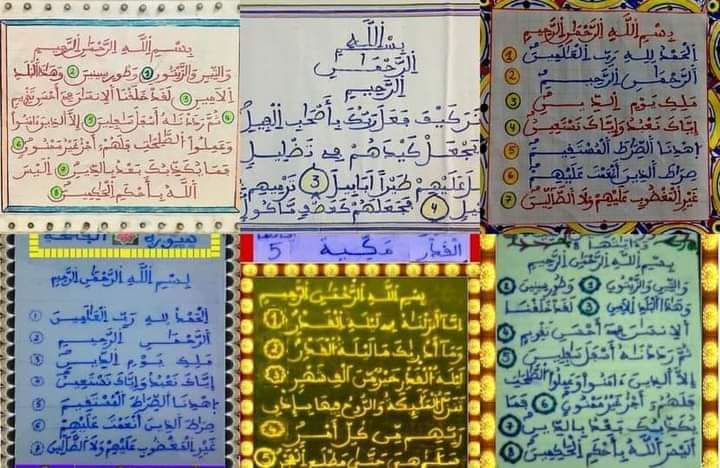 بسم الله الرحمن الرحيم
والتين والزيتون 1 وطور سينين 2 وهذا البلد
الامين 3 لقد خلقنا الانسان في أحسن تقويم
4 ثم رددناه أسفل سافلين 5 إلا الذين ءامنوا
وعملوا الصالحات فلهم أجر غير ممنون 6
فما يكذبك بعد بالدين 7 أليس
الله بأحكم الحاكمين 8
بسم الله
الرحمن
الرحيم
تر كيف فعل ربك بأصحاب الفيل
يجعل كيدهم في تضليل
سل عليهم طيرا أبابيل 3 ترميهم
سجيل 4 فجعلهم كعصف ماكول
بسم الله الرحمن الرحيم
1 الحمد لله رب العالمين
2 الرحمن الرحيم
3 ملك يوم الدين
4 إياك نعبد وإياك نستعين
5 اهدنا الصراط المستقيم
6 صراط الذين أنعمت عليهم
7 غير المغضوب عليهم ولا الضالين
سورة الفاتحة
بسم الله الرحمن الرحيم
1 الحمد لله رب العالمين
2 الرحمن الرحيم
3 ملك يوم الدين
4 إياك نعبد وإياك نستعين
5 اهدنا الصراط المستقيم
6 صراط الذين أنعمت عليهم
غير المغضوب عليهم ولا الضالين
القدر مكية 5
بسم الله الرحمن الرحيم
إنا أنزلناه في ليلة القدر 1
وما أدراك ما ليلة القدر 2
ليلة القدر خير من ألف شهر 3
تنزل الملائكة والروح فيها بإذن
ربهم من كل أمر 4
سلام هي حتى مطلع الفجر 5
بسم الله الرحمن الرحيم
والتين والزيتون 1 وطور سينين 2
وهذا البلد الامين 3 لقد خلقنا
الانسان في أحسن تقويم 4
ثم رددناه أسفل سافلين 5
إلا الذين ءامنوا وعملوا الصالحات
فلهم أجر غير ممنون 6 فما
يكذبك بعد بالدين 7
أليس الله بأحكم الحاكمين 8